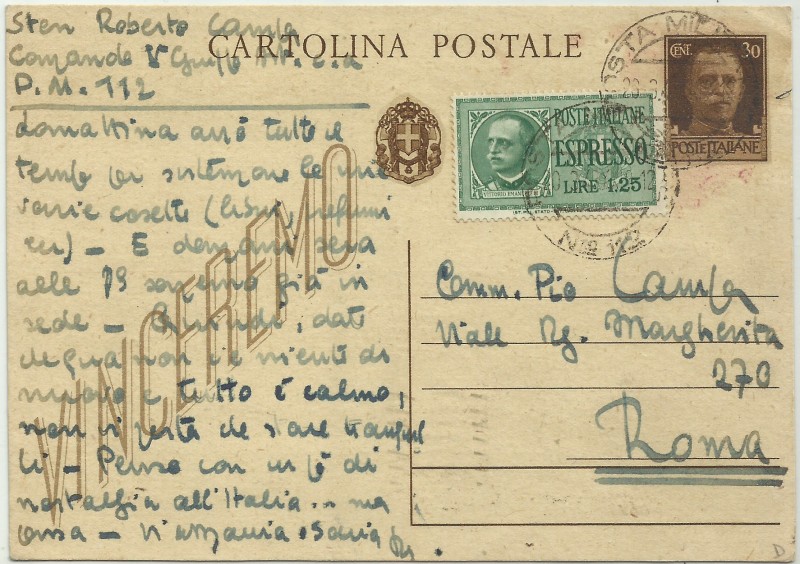 Sten Roberto Campa
Comando V° Grupp
P.M. 112
CARTOLINA POSTALE
POSTA MIL
CENT. 30
POSTE ITALIANE
POSTE ITALIANE
ESPRESSO
LIRE 1.25
VITTORIO EMAN
No 112
VINCEREMO
domattina avrò tutto il
tempo per sistemare le mie
varie cosette (libri, profumi
) – E domani sera
alle 19 saremo già in
sede – Quindi, dati
che qua non c'è niente di
nuovo e tutto è calmo,
non vi resta che stare tranquil
li – Penso con un pò di
nostalgia all'Italia .. ma
passa –
Comm. Pio Campa
Viale Rg. Margherita
270
Roma
D